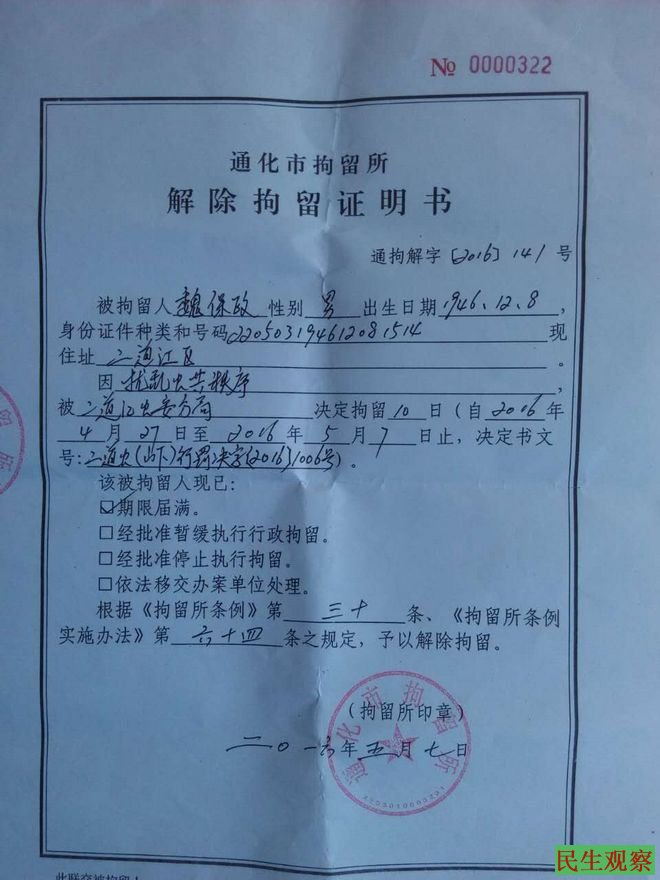 № 0000322
通化市拘留所
解除拘留证明书
通拘解字〔2016〕141号
被拘留人 魏保政 性别 男 出生日期 1946、12、8，
身份证件种类和号码 220503194612081514 现
住址 二道江区 。
因 扰乱公共秩序 ，
被 二道江公安分局 决定拘留 10 日（自 2016 年
4 月 27 日至 2016 年 5 月 7 日止，决定书文
号：二道公(治下)行罚决字〔2016〕1006号）。
该被拘留人现已：
☑期限届满。
□经批准暂缓执行行政拘留。
□经批准停止执行拘留。
□依法移交办案单位处理。
根据《拘留所条例》第 三十 条、《拘留所条例
实施办法》第 六十四 条之规定，予以解除拘留。
通化市拘留所
（拘留所印章）
二〇一六年五月七日
民生观察